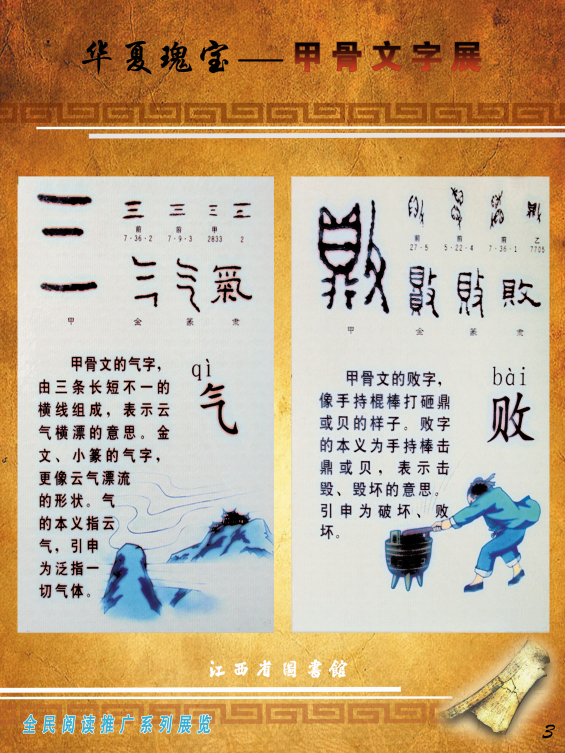 华夏瑰宝——甲骨文字展
前 前 甲
7·36·2 7·9·3 2833 2
甲 金 篆 隶
qì
气
甲骨文的气字，
由三条长短不一的
横线组成，表示云
气横漂的意思。金
文、小篆的气字，
更像云气漂流
的形状。气
的本义指云
气，引申
为泛指一
切气体。
前 前 前 乙
27·5 5·22·4 7·36·1 7705
甲 金 篆 隶
bài
败
甲骨文的败字，
像手持棍棒打砸鼎
或贝的样子。败字
的本义为手持棒击
鼎或贝，表示击
毁、毁坏的意思。
引申为破坏、败
坏。
江西省图書館
全民阅读推广系列展览
3